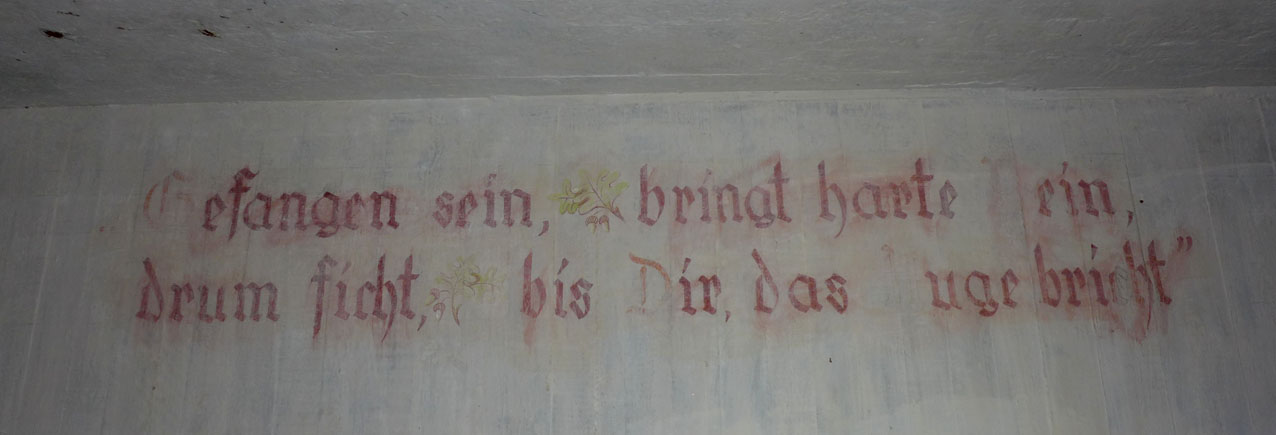 Gefangen sein, bringt harte Pein,
drum ficht, bis Dir, das Auge bricht"